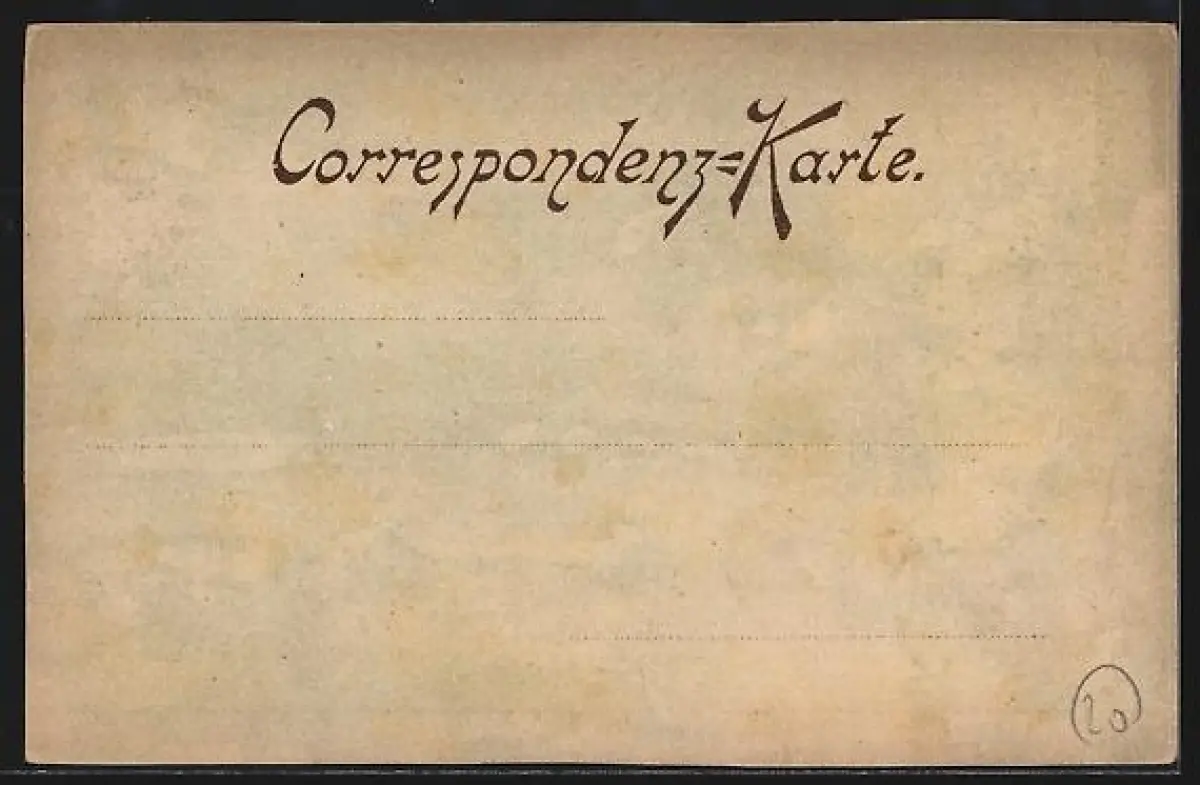 Correspondenz=Karte.
20